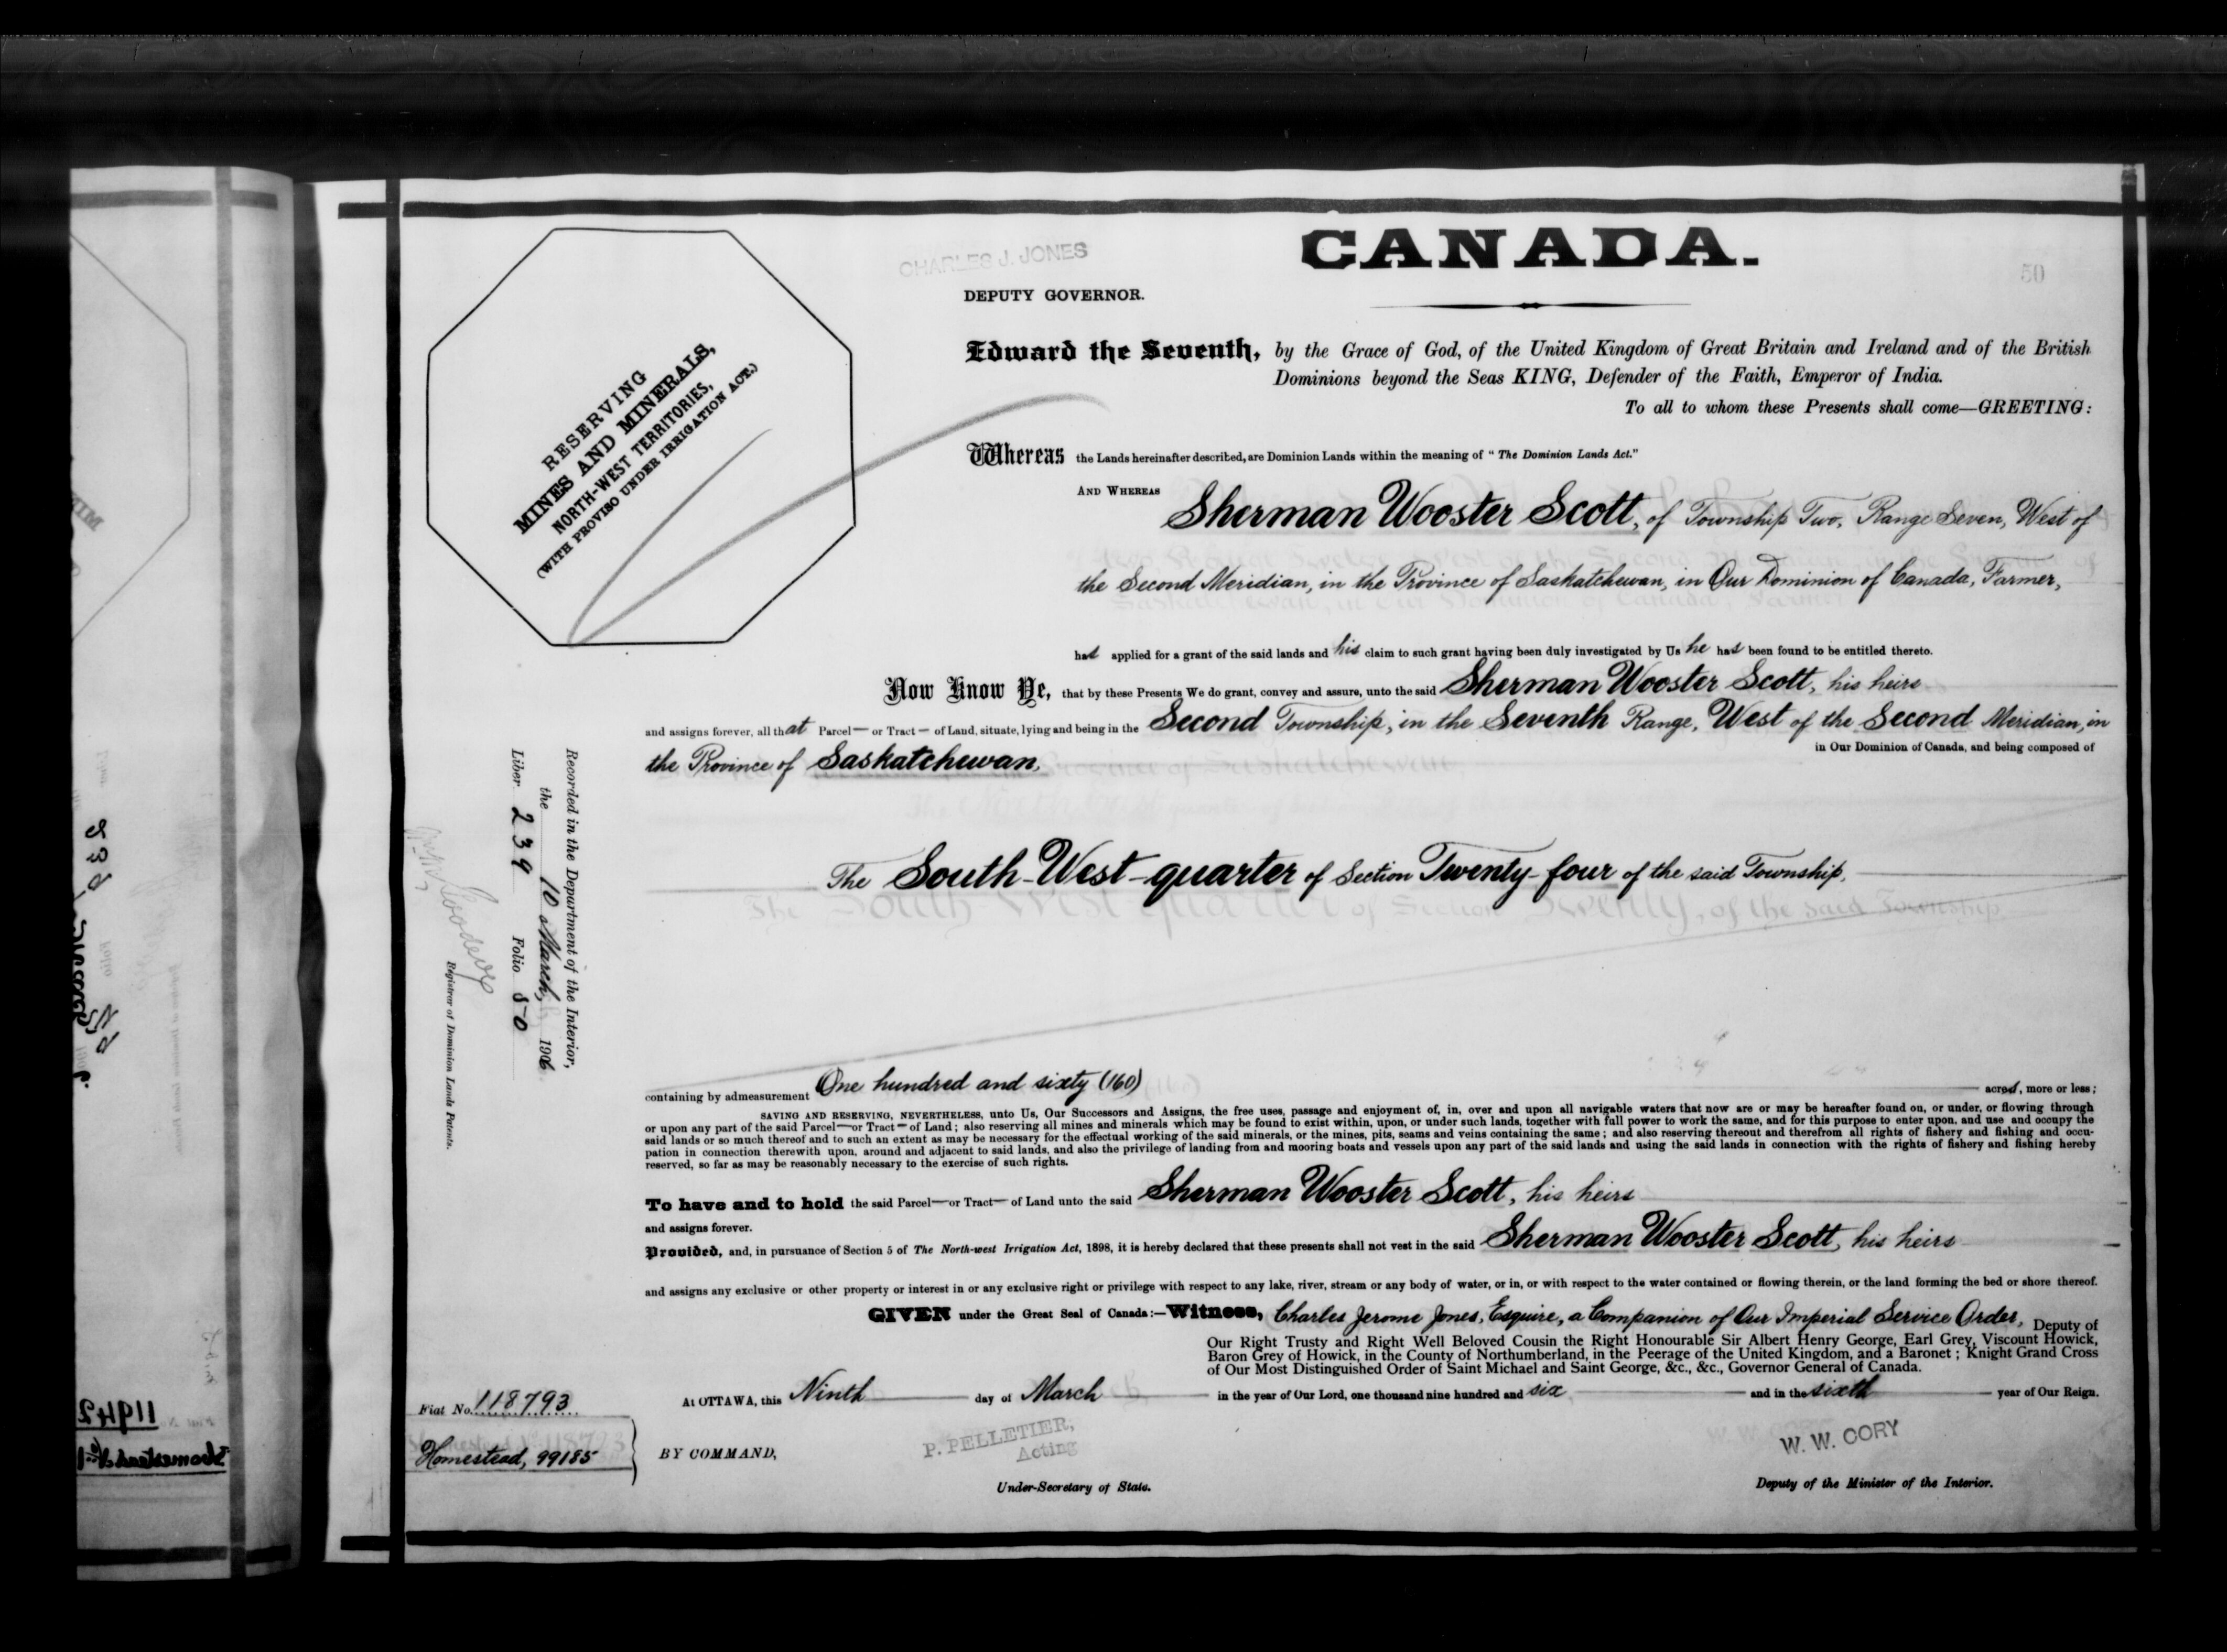 CANADA.
CHARLES J. JONES
50
DEPUTY GOVERNOR.
RESERVING
MINES AND MINERALS,
NORTH-WEST TERRITORIES,
(WITH PROVISO UNDER IRRIGATION ACT.)
Edward the Seventh, by the Grace of God, of the United Kingdom of Great Britain and Ireland and of the British
Dominions beyond the Seas KING, Defender of the Faith, Emperor of India.
To all to whom these Presents shall come—GREETING:
Whereas the Lands hereinafter described, are Dominion Lands within the meaning of "The Dominion Lands Act."
AND WHEREAS Sherman Wooster Scott, of Township Two, Range Seven, West of
the Second Meridian, in the Province of Saskatchewan, in Our Dominion of Canada, Farmer,
has applied for a grant of the said lands and his claim to such grant having been duly investigated by Us he has been found to be entitled thereto.
Now Know Ye, that by these Presents We do grant, convey and assure, unto the said Sherman Wooster Scott, his heirs
and assigns forever, all that Parcel— or Tract— of Land, situate, lying and being in the Second Township, in the Seventh Range, West of the Second Meridian, in
the Province of Saskatchewan,
in Our Dominion of Canada, and being composed of
The South-West-quarter of Section Twenty-four of the said Township,
containing by admeasurement One hundred and sixty (160) acres, more or less;
SAVING AND RESERVING, NEVERTHELESS, unto Us, Our Successors and Assigns, the free uses, passage and enjoyment of, in, over and upon all navigable waters that now are or may be hereafter found on, or under, or flowing through
or upon any part of the said Parcel—or Tract— of Land; also reserving all mines and minerals which may be found to exist within, upon, or under such lands, together with full power to work the same, and for this purpose to enter upon, and use and occupy the
said lands or so much thereof and to such an extent as may be necessary for the effectual working of the said minerals, or the mines, pits, seams and veins containing the same; and also reserving thereout and therefrom all rights of fishery and fishing and occu-
pation in connection therewith upon, around and adjacent to said lands, and also the privilege of landing from and mooring boats and vessels upon any part of the said lands and using the said lands in connection with the rights of fishery and fishing hereby
reserved, so far as may be reasonably necessary to the exercise of such rights.
To have and to hold the said Parcel—or Tract— of Land unto the said Sherman Wooster Scott, his heirs
and assigns forever.
Provided, and, in pursuance of Section 5 of The North-west Irrigation Act, 1898, it is hereby declared that these presents shall not vest in the said Sherman Wooster Scott, his heirs
and assigns any exclusive or other property or interest in or any exclusive right or privilege with respect to any lake, river, stream or any body of water, or in, or with respect to the water contained or flowing therein, or the land forming the bed or shore thereof.
GIVEN under the Great Seal of Canada:—Witness, Charles Jerome Jones, Esquire, a Companion of Our Imperial Service Order, Deputy of
Our Right Trusty and Right Well Beloved Cousin the Right Honourable Sir Albert Henry George, Earl Grey, Viscount Howick,
Baron Grey of Howick, in the County of Northumberland, in the Peerage of the United Kingdom, and a Baronet; Knight Grand Cross
of Our Most Distinguished Order of Saint Michael and Saint George, &c., &c., Governor General of Canada.
At OTTAWA, this Ninth day of March in the year of Our Lord, one thousand nine hundred and six and in the sixth year of Our Reign.
BY COMMAND,
P. PELLETIER,
Acting
Under-Secretary of State.
W. W. CORY
Deputy of the Minister of the Interior.
Fiat No. 118793
Homestead, 99185
Recorded in the Department of the Interior,
the 10 March, 1906
Liber 239 Folio 50
Registrar of Dominion Lands Patents.
11942